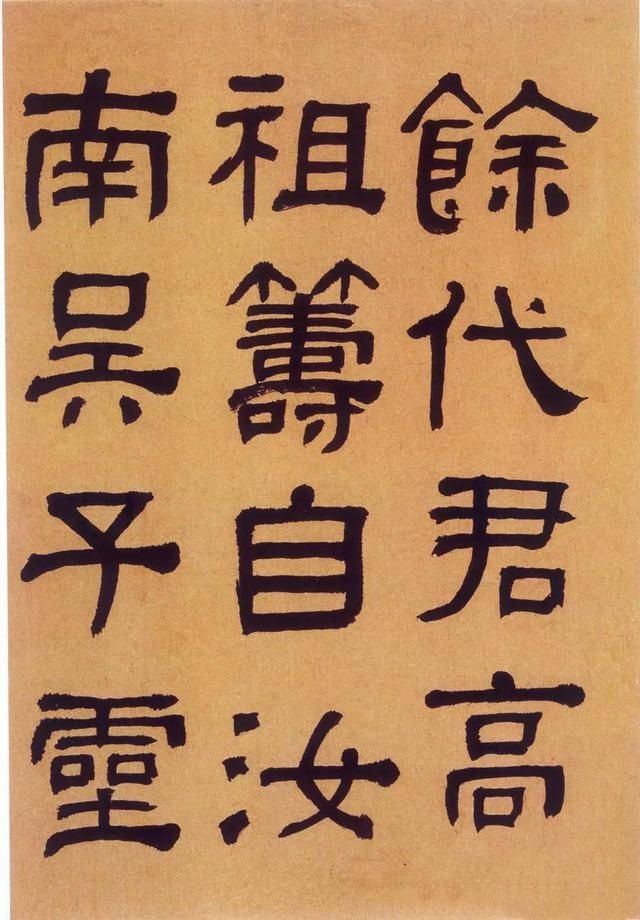 餘代君高
祖籌自汝
南吳子靈